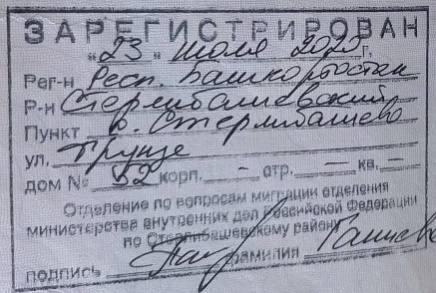 ЗАРЕГИСТРИРОВАН
"23" июля 2020 г.
Рег-н Респ. Башкортостан
Р-н Стерлибашевский
Пункт с. Стерлибашево
ул. Фрунзе
дом № 52 корп. – стр. – кв. –
Отделение по вопросам миграции отделения
министерства внутренних дел Российской Федерации
по Стерлибашевскому району
подпись фамилия